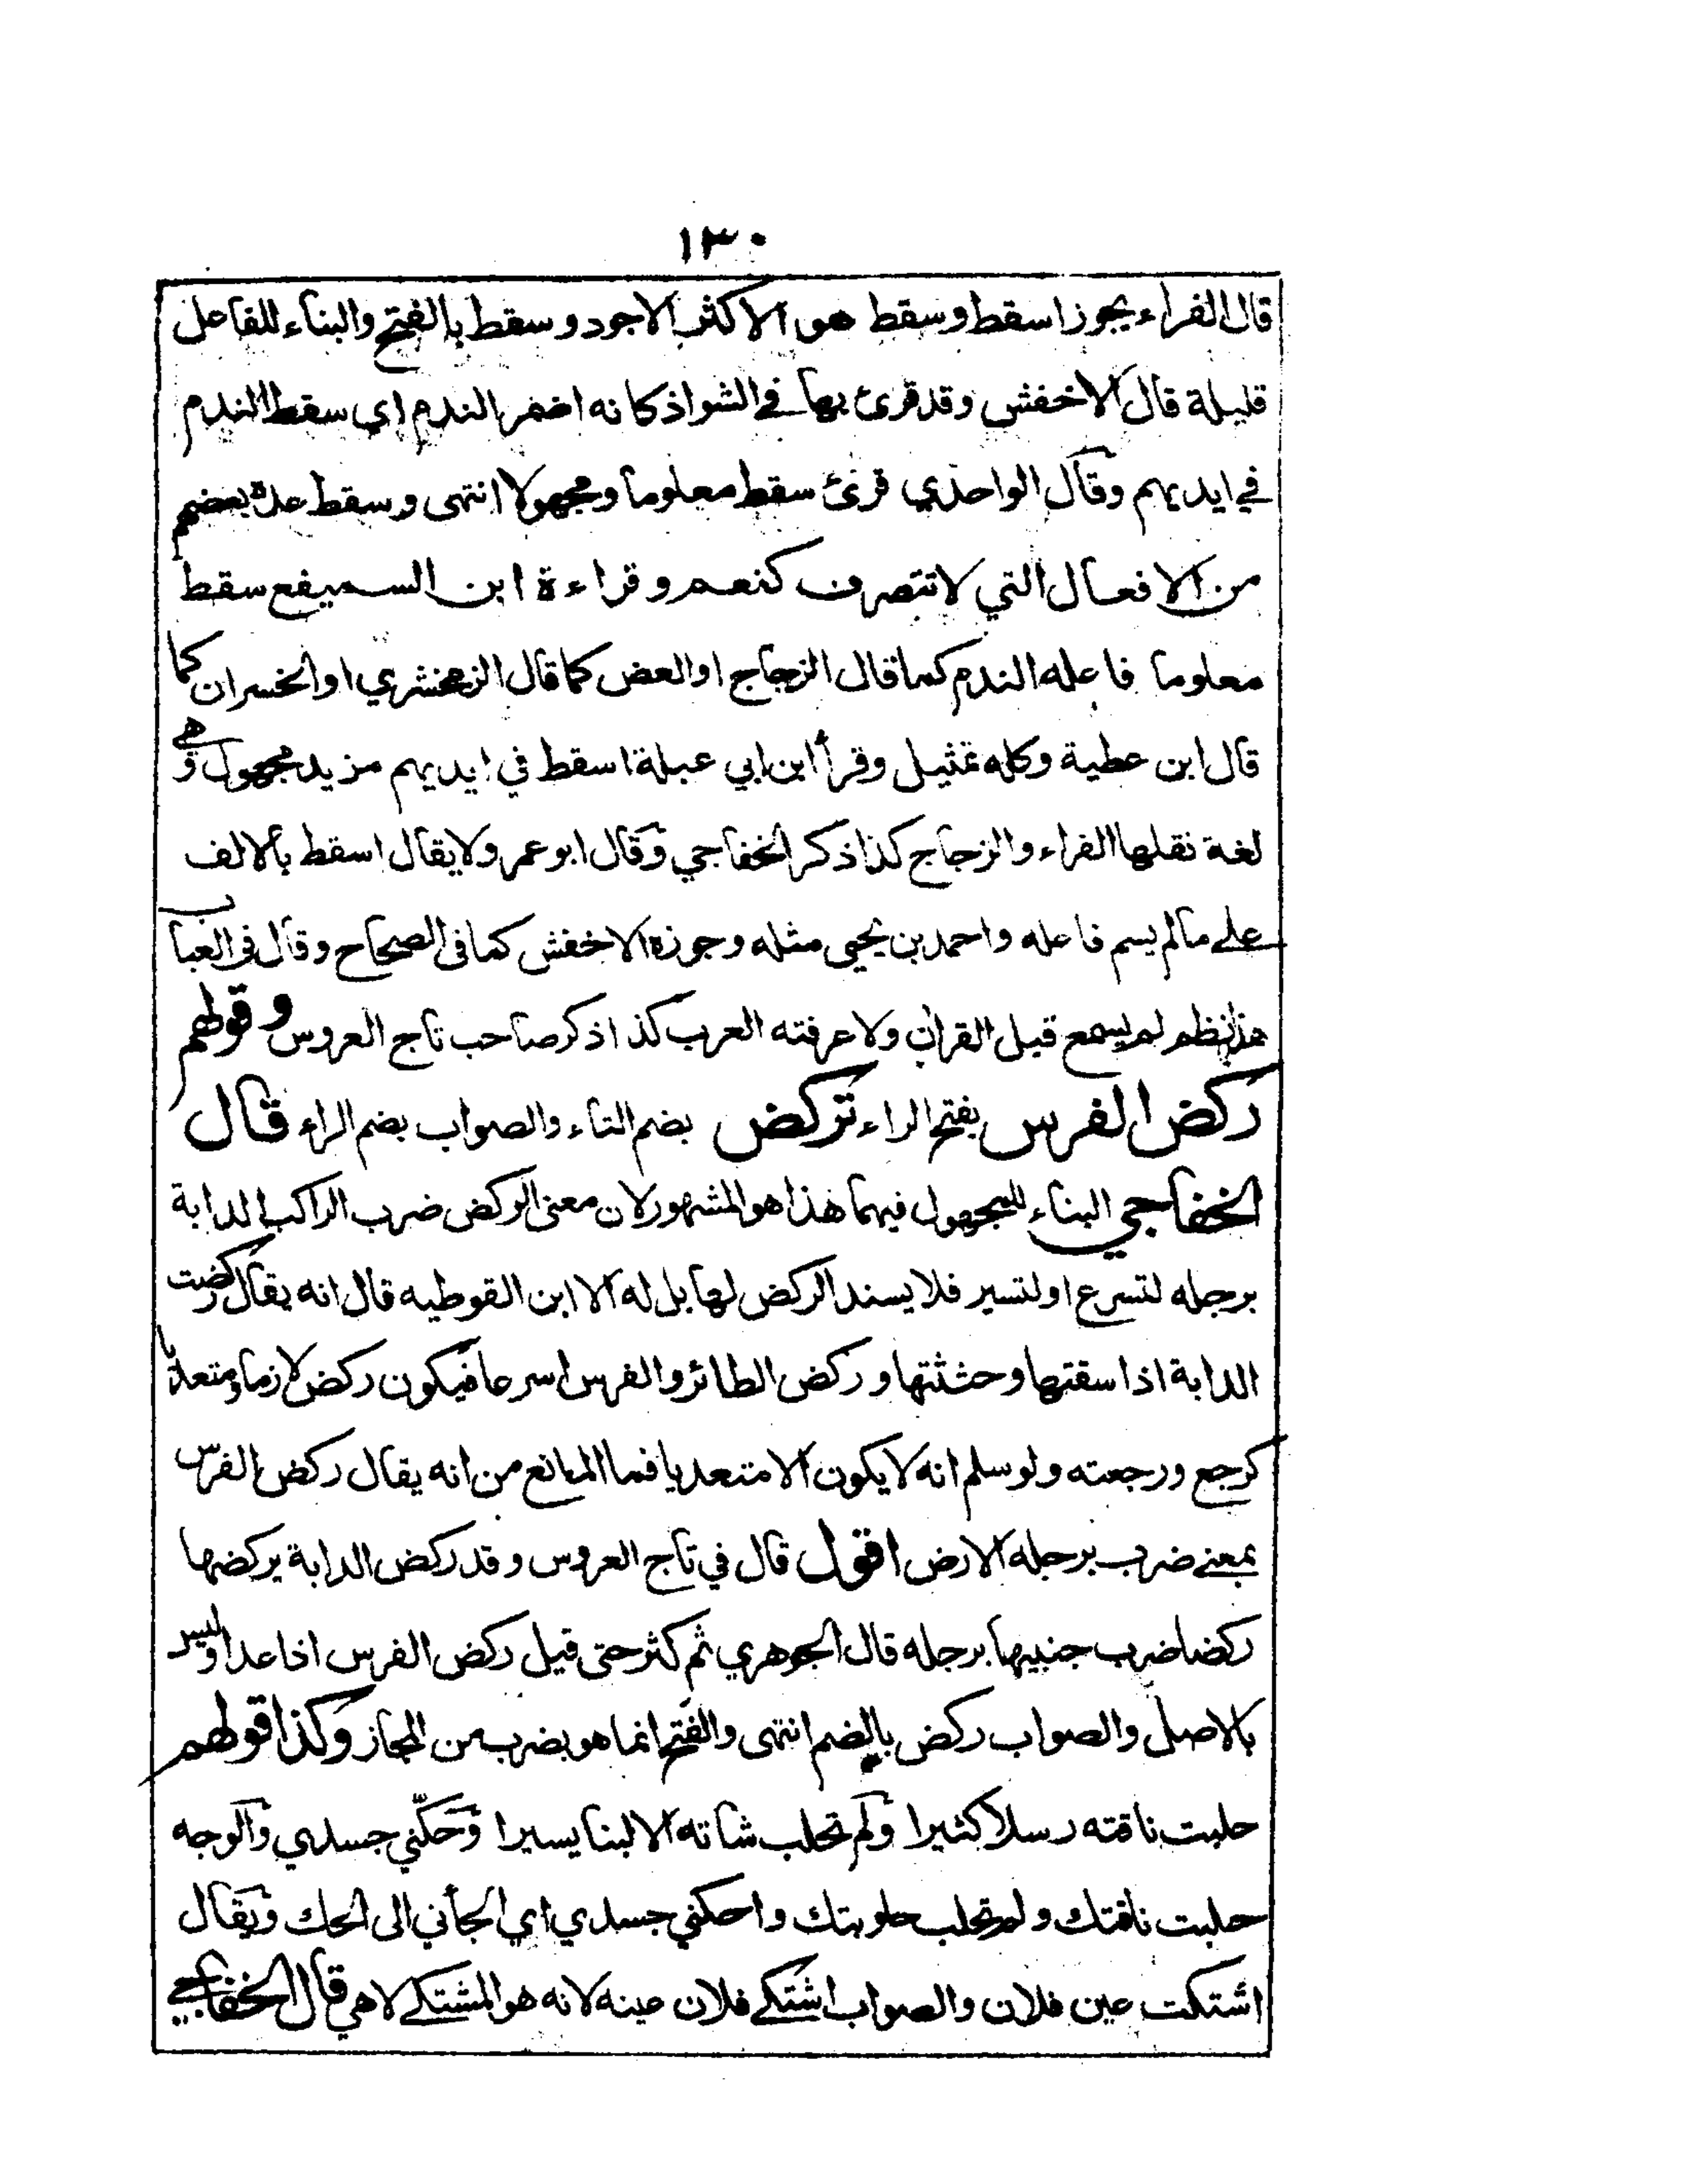 ١٣٠
قال الفراء يجوز اسقط وسقط هو الاكثر الاجود وسقط بالفتح والبناء للفاعل
قليلة قال الاخفش وقد قرئ بها في الشواذ كانه اضمر الندم اي سقط الندم
في ايديهم وقال الواحدي قرئ سقط معلوما ومجهولا انتهى وسقط عده بعضهم
من الافعال التي لا تتصرف كنعم وقراءة ابن السميفع سقط
معلوما فاعله الندم كما قال الزجاج او العض كما قال الزمخشري او الخسران كما
قال ابن عطية وكله تمثيل وقرأ ابن ابي عبلة اسقط في ايديهم مزيد مجهول وهي
لغة نقلها الفراء والزجاج كذا ذكر الخفاجي وقال ابو عمرو لا يقال اسقط بالالف
على مالم يسم فاعله واحمد بن يحيى مثله وجوزه الاخفش كما في الصحاح وقال في العباب
هذا نظم لم يسمع قبل القران ولا عرفته العرب كذا ذكر صاحب تاج العروس وقولهم
ركض الفرس بفتح الراء تركض بضم التاء والصواب بضم الراء قال
الخفاجي البناء للمجهول فيهما هذا هو المشهور لان معنى الركض ضرب الراكب الدابة
برجله لتسرع او لتسير فلا يسند الركض لها بل له الا ابن القوطيه قال انه يقال ركضت
الدابة اذا سقتها وحثثتها وركض الطائر والفرس اسرعا فيكون ركض لازما ومتعديا
كرجع ورجعته ولو سلم انه لا يكون الا متعديا فما المانع من انه يقال ركض الفرس
بمعنى ضرب برجله الارض اقول قال في تاج العروس وقد ركض الدابة يركضها
ركضا ضرب جنبيها برجله قال الجوهري ثم كثر حتى قيل ركض الفرس اذا عدا وليس
بالاصل والصواب ركض بالضم انتهى والفتح انما هو بضرب من المجاز وكذا قولهم
حلبت ناقته رسلا كثيرا ولم تحلب شاته الا لبنا يسيرا وحكّني جسدي والوجه
حلبت ناقتك ولم تحلب حلوبتك واحكني جسدي اي الجأني الى الحك ويقال
اشتكت عين فلان والصواب اشتكى فلان عينه لانه هو المشتكي لا هي قال الخفاجي